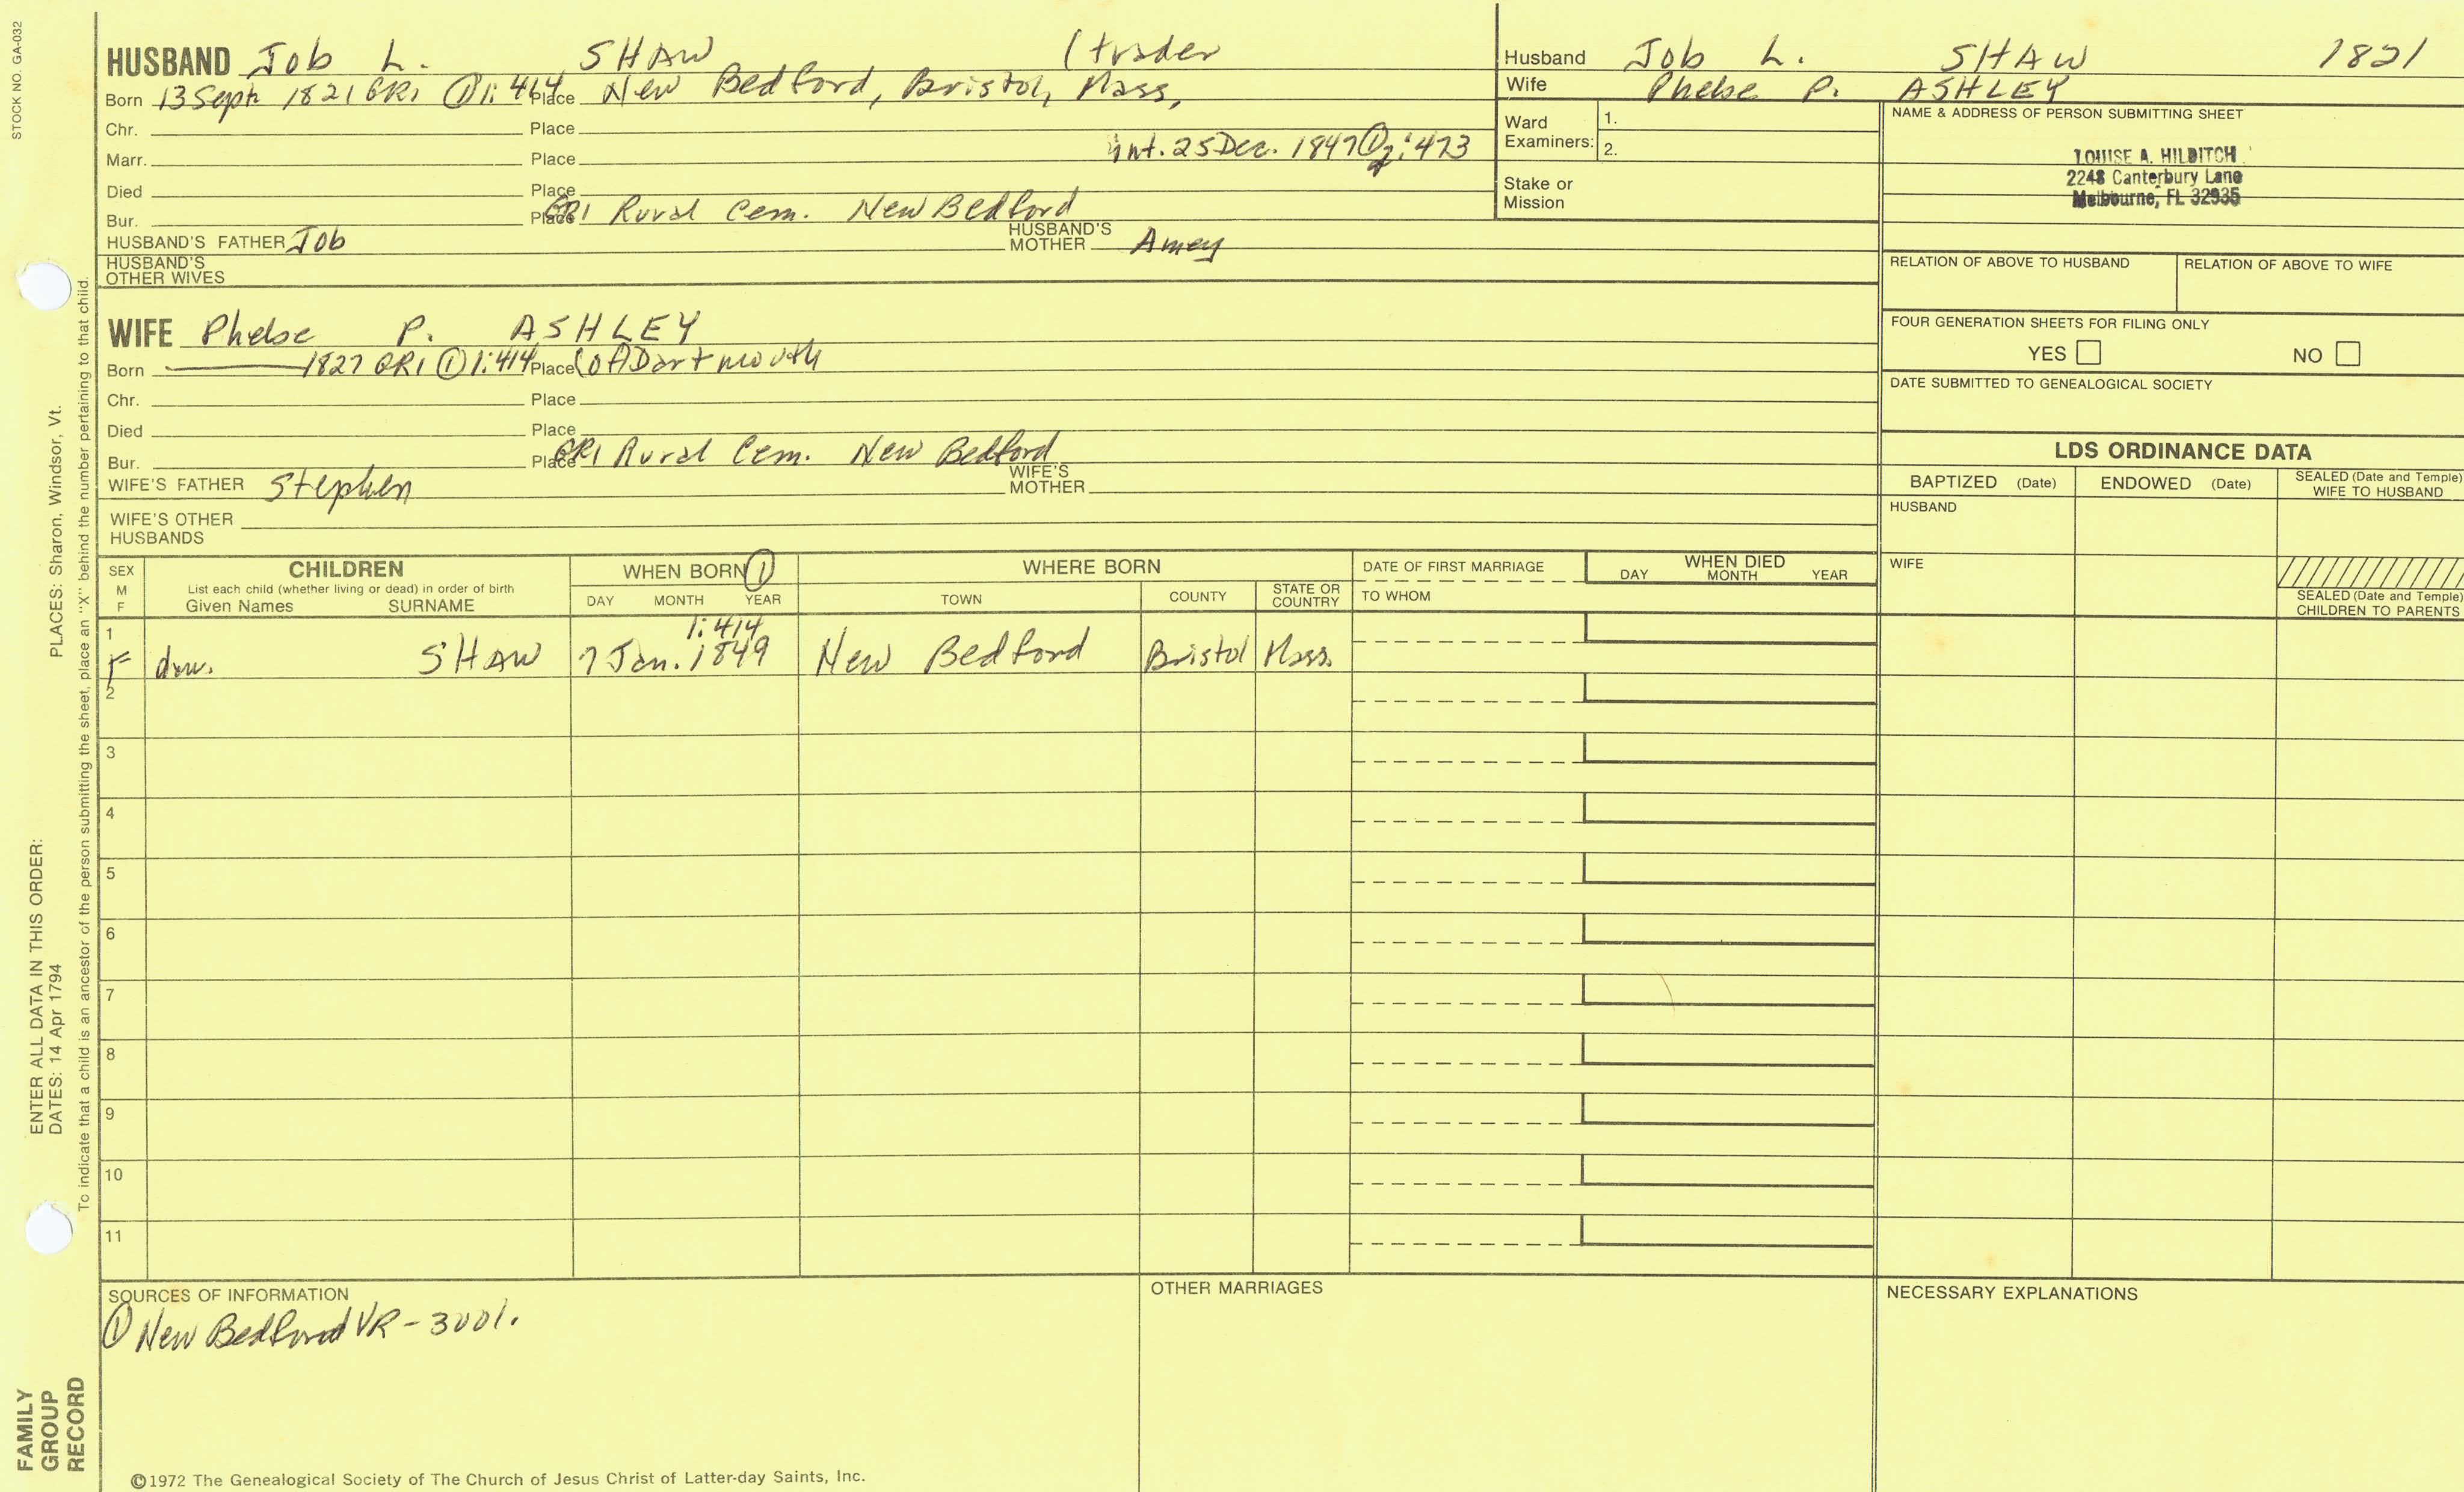 STOCK NO. GA-032
HUSBAND Job L. SHAW (trader
Born 13 Sept 1821 GR1 ① 1:414 Place New Bedford, Bristol, Mass,
Chr. Place
Marr. Place int. 25 Dec. 1847 ① 2:473
Died Place
Bur. Place GR1 Rural Cem. New Bedford
HUSBAND'S FATHER Job HUSBAND'S MOTHER Amey
HUSBAND'S OTHER WIVES
Husband Job L. SHAW 1821
Wife Phebe P. ASHLEY
Ward Examiners: 1.
2.
Stake or Mission
NAME & ADDRESS OF PERSON SUBMITTING SHEET
LOUISE A. HILDITCH
2248 Canterbury Lane
Melbourne, FL 32935
RELATION OF ABOVE TO HUSBAND RELATION OF ABOVE TO WIFE
FOUR GENERATION SHEETS FOR FILING ONLY
YES NO
DATE SUBMITTED TO GENEALOGICAL SOCIETY
WIFE Phebe P. ASHLEY
Born 1827 GR1 ① 1:414 Place (of) Dartmouth
Chr. Place
Died Place
Bur. Place GR1 Rural Cem. New Bedford
WIFE'S FATHER Stephen WIFE'S MOTHER
WIFE'S OTHER HUSBANDS
LDS ORDINANCE DATA
BAPTIZED (Date) ENDOWED (Date) SEALED (Date and Temple) WIFE TO HUSBAND
HUSBAND
WIFE
SEALED (Date and Temple) CHILDREN TO PARENTS
SEX M F
CHILDREN
List each child (whether living or dead) in order of birth
Given Names SURNAME
WHEN BORN ①
DAY MONTH YEAR
WHERE BORN
TOWN COUNTY STATE OR COUNTRY
DATE OF FIRST MARRIAGE
TO WHOM
WHEN DIED
DAY MONTH YEAR
1 1:414
F dau. SHAW 7 Jan. 1849 New Bedford Bristol Mass.
2
3
4
5
6
7
8
9
10
11
SOURCES OF INFORMATION
① New Bedford VR - 3001.
OTHER MARRIAGES
NECESSARY EXPLANATIONS
©1972 The Genealogical Society of The Church of Jesus Christ of Latter-day Saints, Inc.
ENTER ALL DATA IN THIS ORDER: PLACES: Sharon, Windsor, Vt.
DATES: 14 Apr 1794
To indicate that a child is an ancestor of the person submitting the sheet, place an "X" behind the number pertaining to that child.
FAMILY
GROUP
RECORD